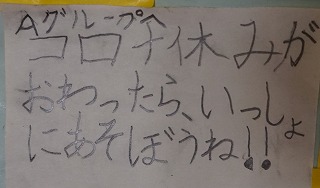 Aグループへ
コロナ休みが
おわったら、いっしょ
にあそぼうね!!